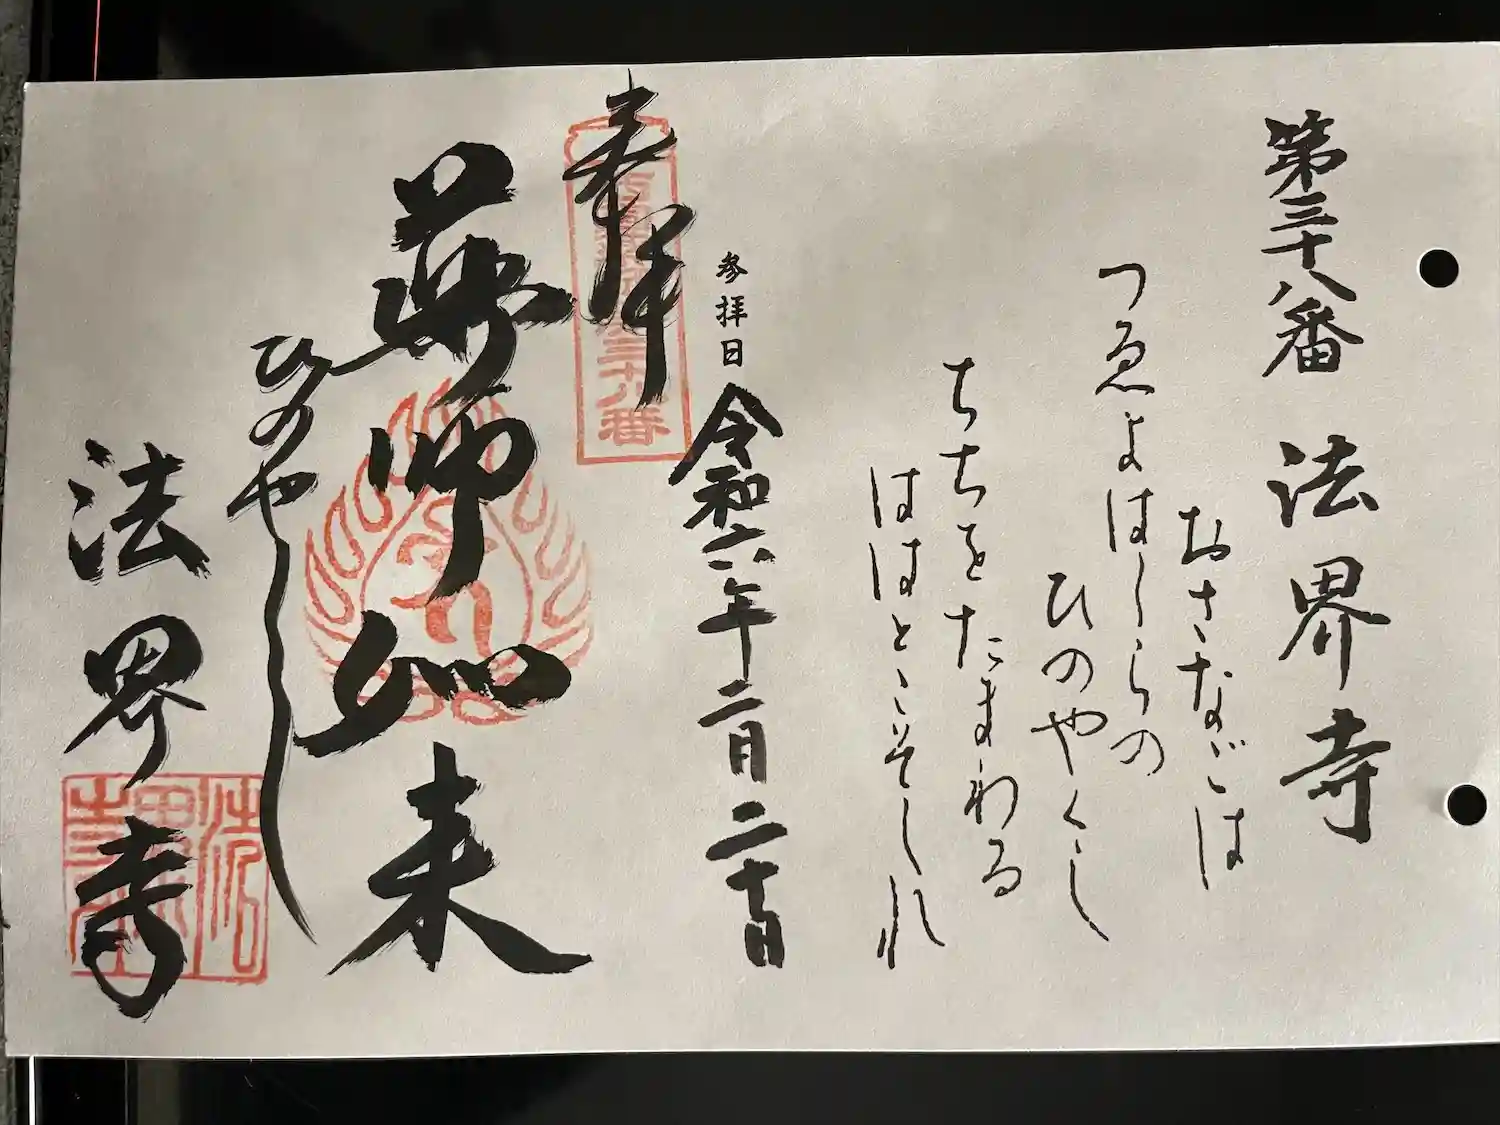 第三十八番 法界寺
おさなごは
つゑよはしらの
ひのやくし
ちちをたまわる
ははとこそしれ
参拝日 令和六年二月二十日
奉拝
三十八番
薬師如来
ひのやくし
法界寺
法界寺